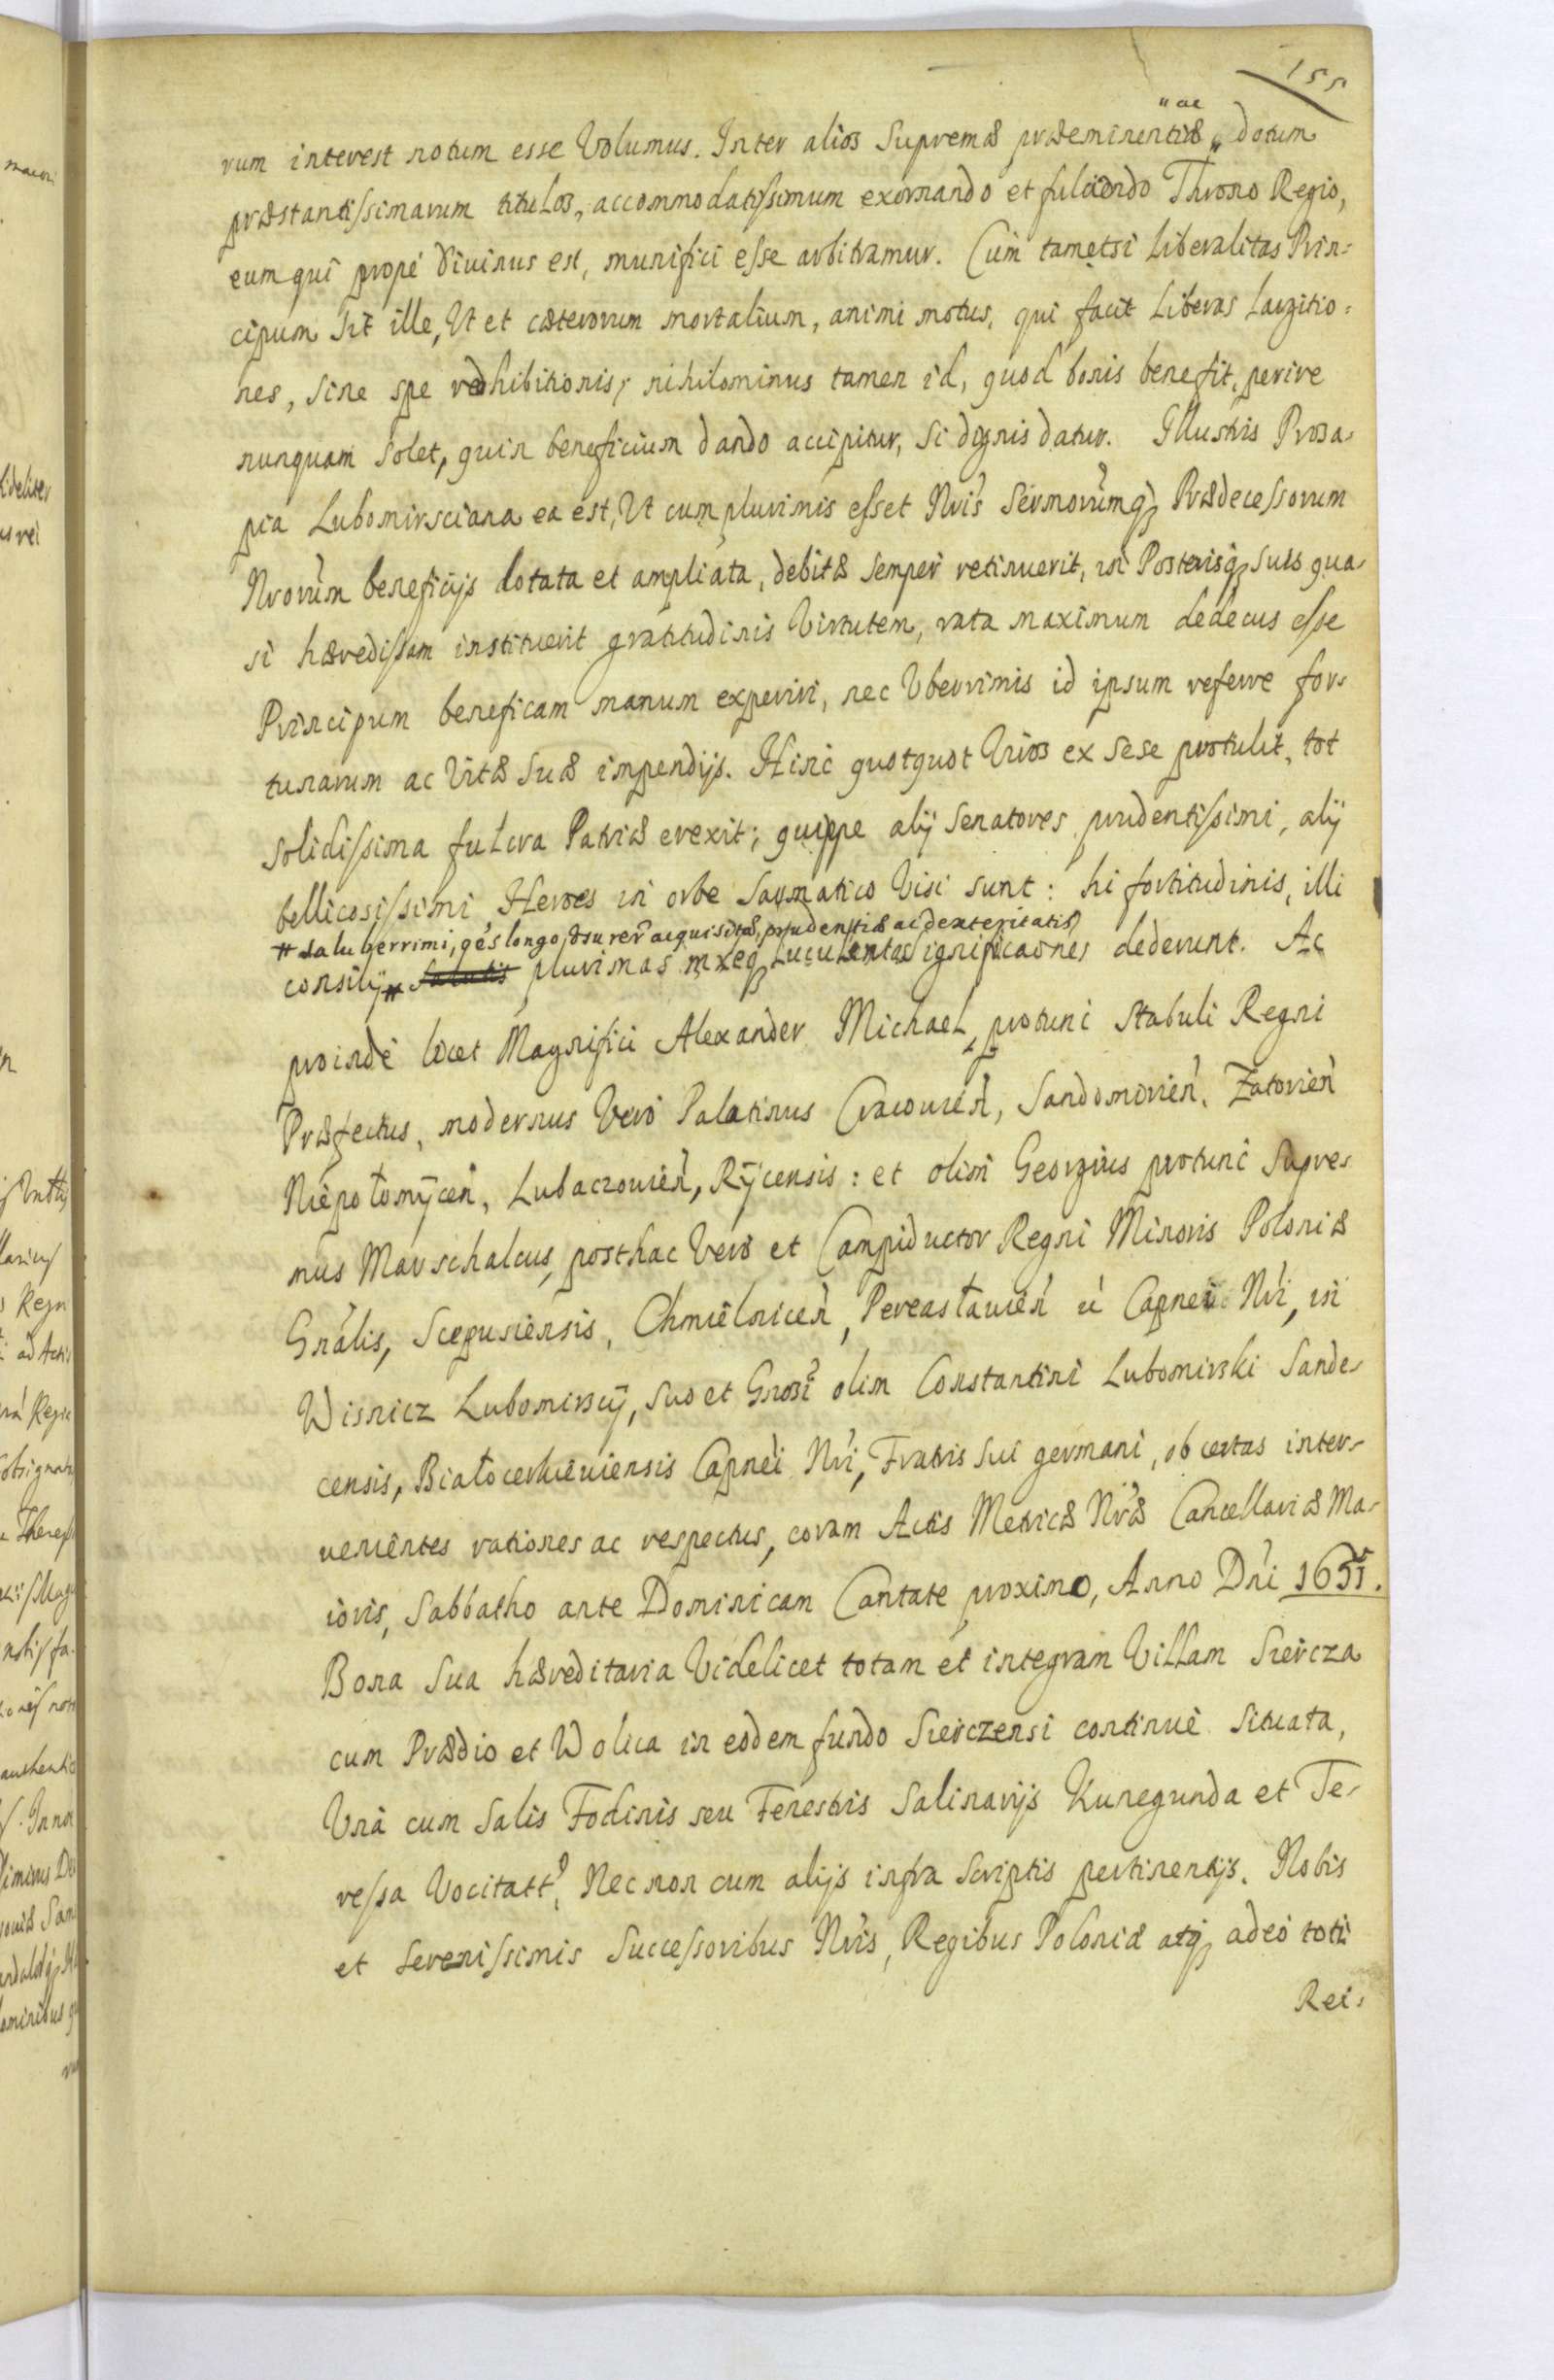 155
"ac
rum interest notum esse Volumus. Inter alios Supremæ præeminentiæ „ dotum
præstantissimarum titulos, accommodatissimum exornando et fulciendo Throno Regio,
eum qui propé divinus est, munifici esse arbitramur. Cùm tametsi Liberalitas Prin:
cipum sit ille, Ut et cæterorum mortalium, animi motus, qui facit Liberas Largitio:
nes, sine spe redhibitionis, nihilominus tamen id, quod bonis benefit, perire
nunquam solet, quin beneficium dando accipitur, si dignis datur. Illustris Prosa-
pia Lubomirsciana ea est, Ut cum plurimis esset Nris Sermorumq3 Prædecessorum
Nrorum beneficijs dotata et ampliata, debitæ semper retinuerit, in Posterisq3 suis qua-
si hæredissam instituerit gratitudinis Virtutem, rata maximum dedecus esse
Principum beneficam manum experiri, nec Uberrimis id ipsum referre for-
tunarum ac Vitæ Suæ impendijs. Hinc quotquot Viros ex sese protulit, tot
solidissima fulcra Patriæ erexit; quippe alij Senatores prudentissimi, alij
bellicosissimi Heroes in orbe Sarmatico Visi sunt: hi fortitudinis, illi
# saluberrimi, qés longo usu reŕ acquisitæ, prudentiæ ac dexteritatis
consilij # salutis plurimas mxeq3 Luculentas significaones dederunt. Ac
proinde licet Magnifici Alexander Michael, protunc Stabuli Regni
Præfectus, modernus Vero Palatinus Cracovień, Sandomirień, Zatorień
Niepołomÿceń, Lubaczowień, Rÿcensis: et olim Georgius protunc Supre-
mus Marschalcus, posthac Vero et Campiductor Regni Minoris Poloniæ
Gnalis, Scepusiensis, Chmielniceń, Pereasławień ú Capnei Nri, in
Wisnicz Lubomirscÿ, suo et Gnosi olim Constantini Lubomirski Sande-
censis, Białocerkieviensis Capnei Nri, Fratris sui germani, ob certas inter-
venientes rationes ac respectus, coram Actis Metricæ Nræ Cancellariæ Ma-
ioris, Sabbatho ante Dominicam Cantate proximo, Anno Dni 1651.
Bona Sua hæreditaria Videlicet totam et integram Villam Siercza
cum Prædio et Wolica in eodem fundo Sierczensi continué situata,
Unà cum Salis Fodinis seu Fenestris Salinarijs Kunegunda et Te-
ressa Vocitatt, Nec non cum alijs infra scriptis pertinentijs. Nobis
et Serenissimis Successoribus Nris, Regibus Poloniæ atq3 adeò toti
Rei-